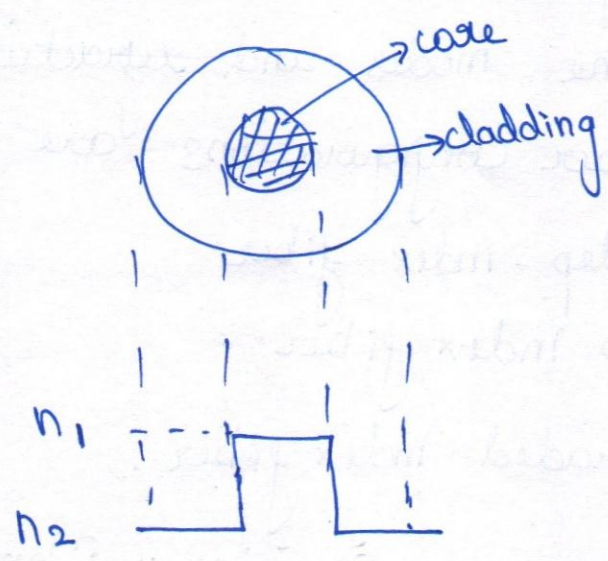 core
cladding
n1
n2